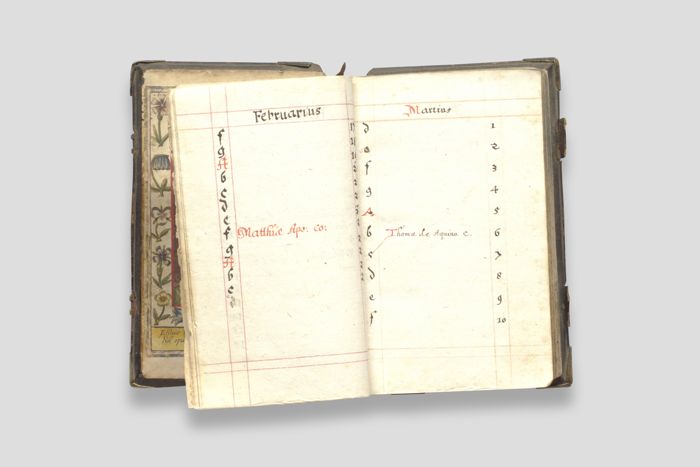 Februarius
f
g
A
b
c
d
e
f Matthiæ Apo. Co:
g
A
b
c
Martius
d 1
e 2
f 3
g 4
A 5
b Thomæ de Aquino. c. 6
c 7
d 8
e 9
f 10